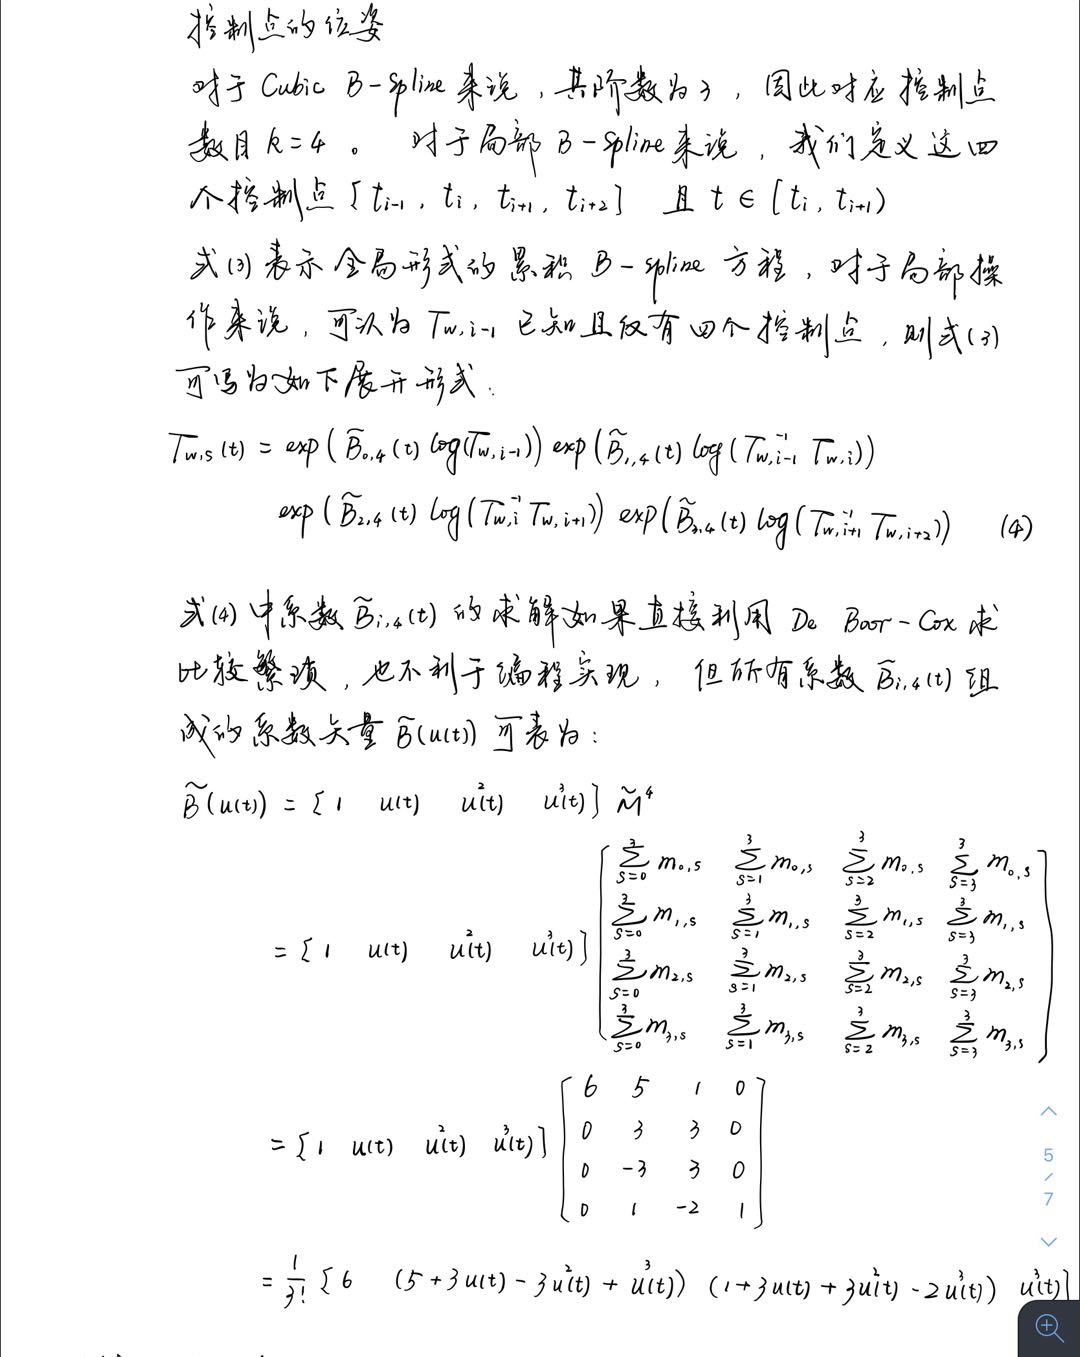 控制点的位姿
对于 Cubic B-Spline 来说，其阶数为3，因此对应控制点
数目 k=4。 对于局部 B-Spline 来说，我们定义这四
个控制点 [t_{i-1}, t_i, t_{i+1}, t_{i+2}] 且 t ∈ [t_i, t_{i+1})
式(3)表示全局形式的累积 B-spline 方程，对于局部操
作来说，可认为 T_{w,i-1} 已知且仅有四个控制点，则式(3)
可写为如下展开形式：
T_{w,s}(t) = exp(B̃_{0,4}(t) log(T_{w,i-1})) exp(B̃_{1,4}(t) log(T_{w,i-1}^{-1} T_{w,i}))
exp(B̃_{2,4}(t) log(T_{w,i}^{-1} T_{w,i+1})) exp(B̃_{3,4}(t) log(T_{w,i+1}^{-1} T_{w,i+2})) (4)
式(4)中系数 B̃_{i,4}(t) 的求解如果直接利用 De Boor-Cox 求
比较繁琐，也不利于编程实现，但所有系数 B̃_{i,4}(t) 组
成的系数矢量 B̃(u(t)) 可表为：
B̃(u(t)) = [1 u(t) u²(t) u³(t)] M̃⁴
= [1 u(t) u²(t) u³(t)] [∑_{s=0}^{3} m_{0,s} ∑_{s=1}^{3} m_{0,s} ∑_{s=2}^{3} m_{0,s} ∑_{s=3}^{3} m_{0,s}
∑_{s=0}^{3} m_{1,s} ∑_{s=1}^{3} m_{1,s} ∑_{s=2}^{3} m_{1,s} ∑_{s=3}^{3} m_{1,s}
∑_{s=0}^{3} m_{2,s} ∑_{s=1}^{3} m_{2,s} ∑_{s=2}^{3} m_{2,s} ∑_{s=3}^{3} m_{2,s}
∑_{s=0}^{3} m_{3,s} ∑_{s=1}^{3} m_{3,s} ∑_{s=2}^{3} m_{3,s} ∑_{s=3}^{3} m_{3,s}]
= [1 u(t) u²(t) u³(t)] [6 5 1 0
0 3 3 0
0 -3 3 0
0 1 -2 1]
= 1/3! [6 (5+3u(t)-3u²(t)+u³(t)) (1+3u(t)+3u²(t)-2u³(t)) u³(t)]
5
/
7